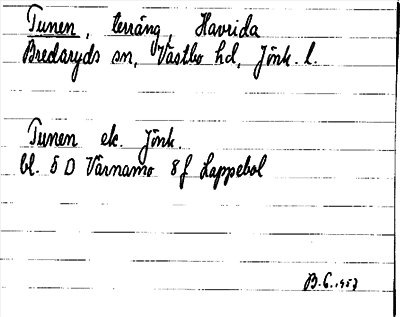 Tunen, terräng, Havrida
Bredaryds sn, Västbo hd, Jönk. l.
Tunen ek. Jönk.
bl. 5 D Värnamo 8f Lappebol
B.G. 1953